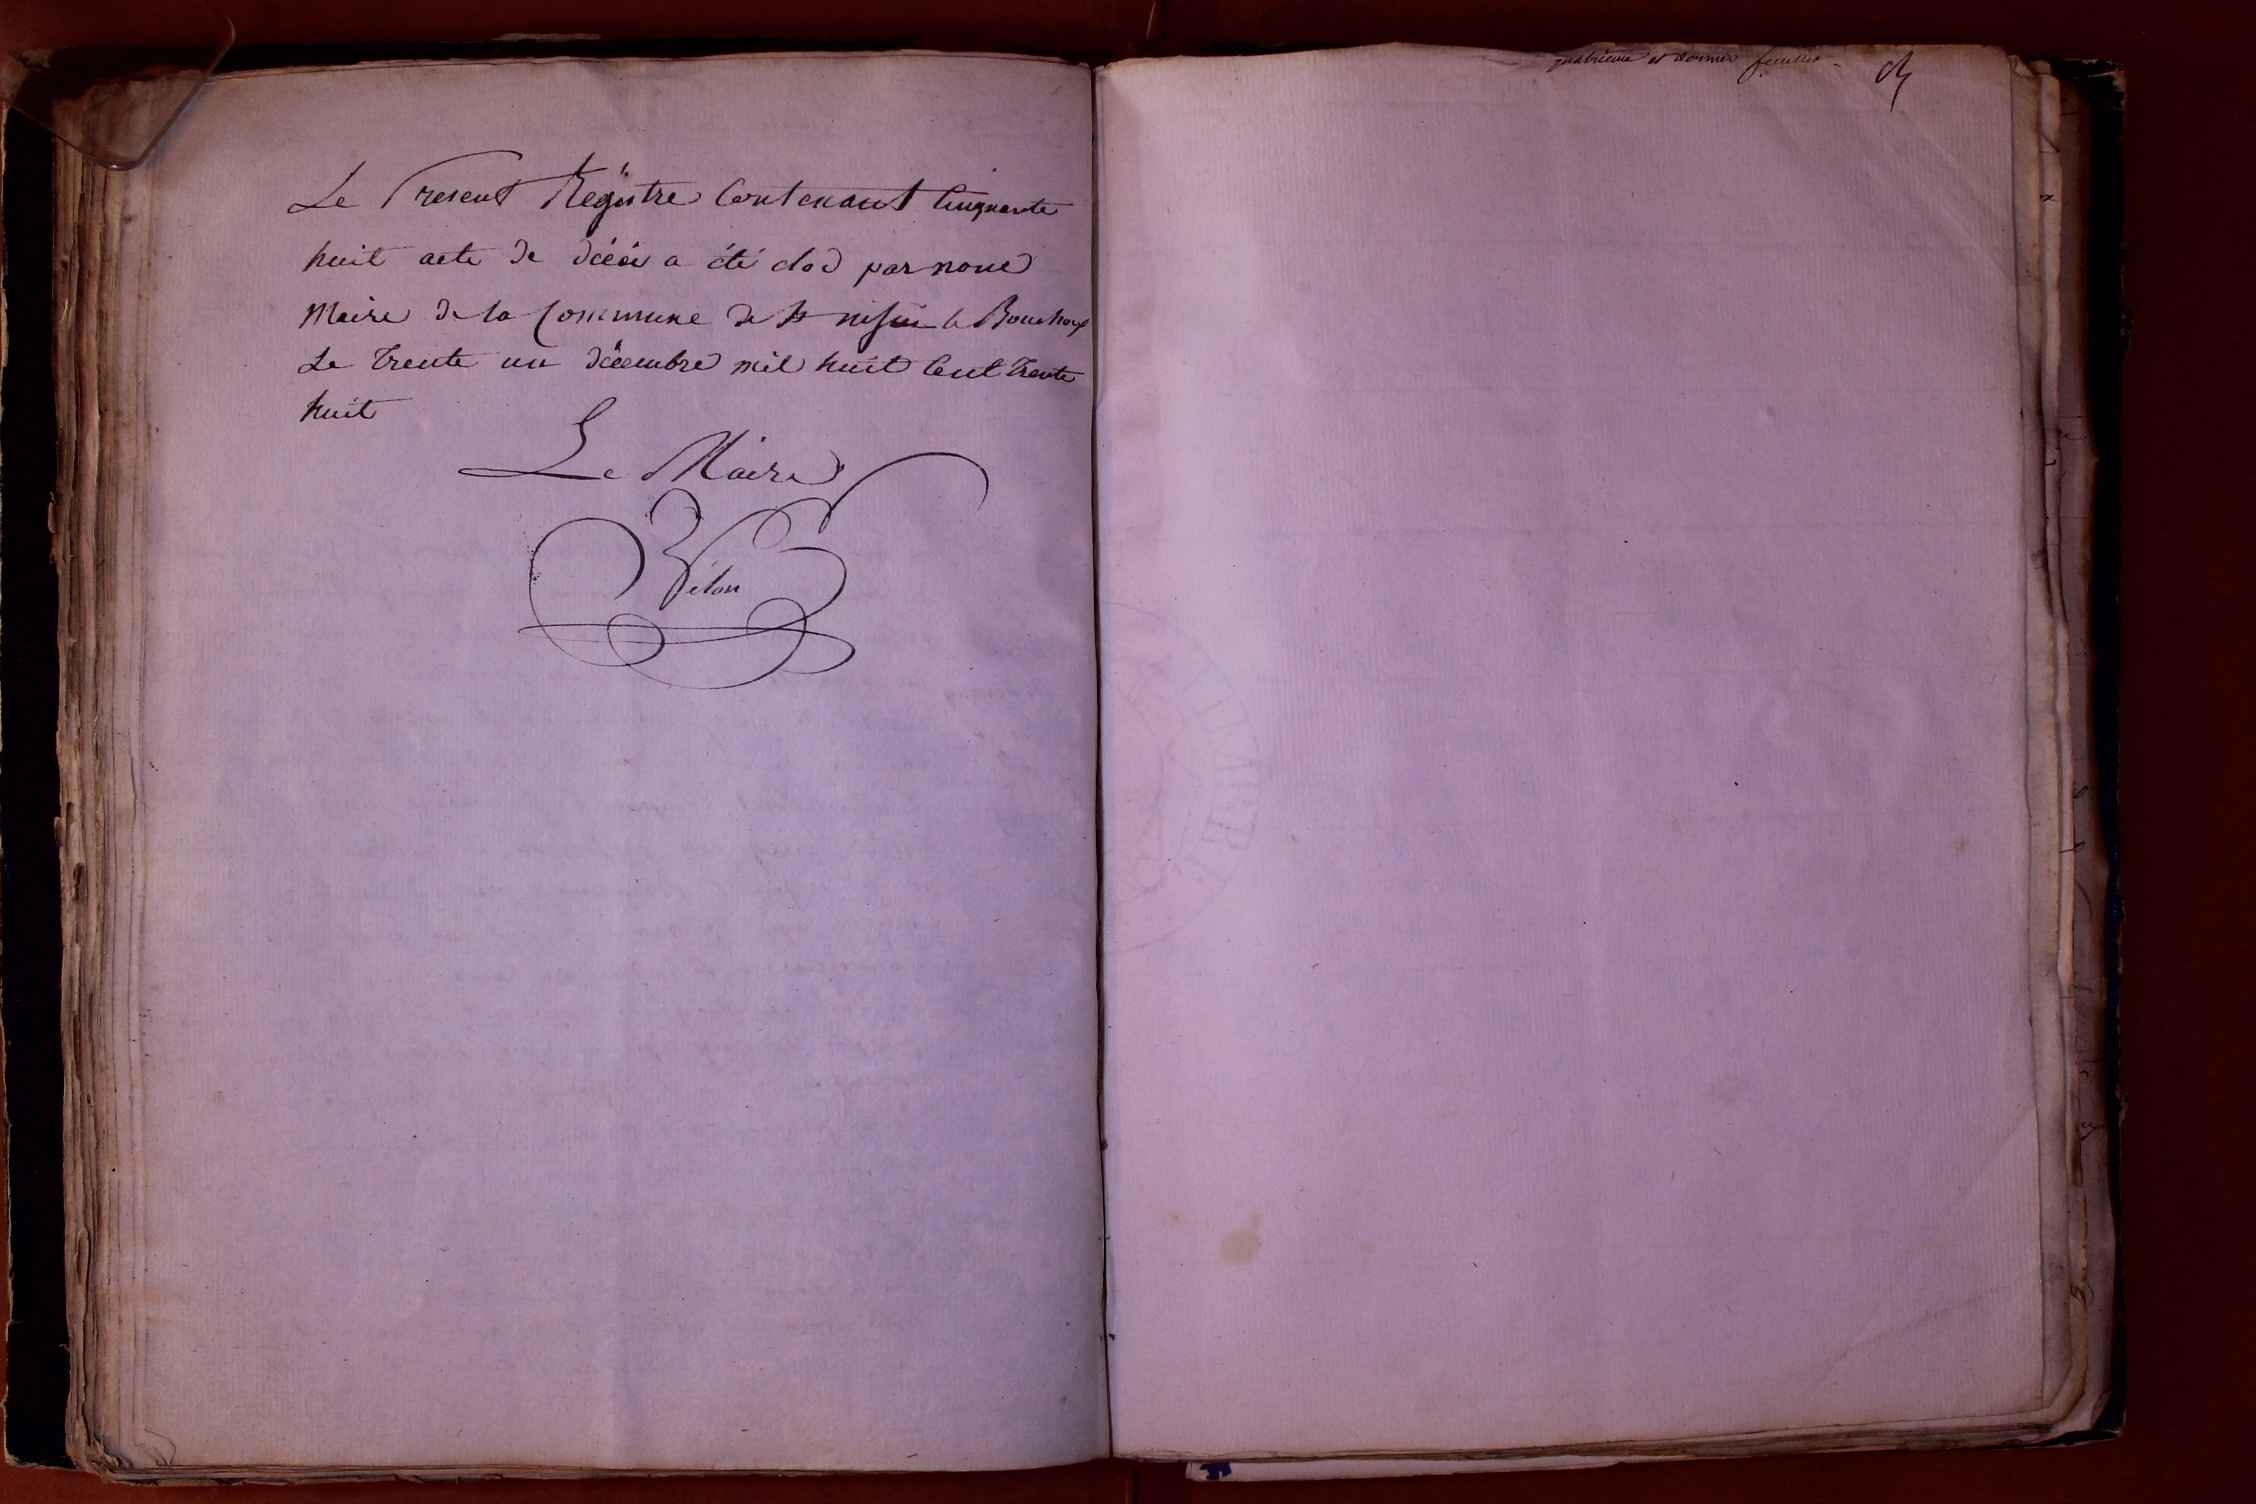 Le Present Registre Contenant Cinquante
huit acte de décés a été clos par nous
Maire de la Commune de St nisier le Bouchoux
Le Trente un décembre mil huit Cent Trente
huit
Le Maire
quatrieme et dernier feuillet